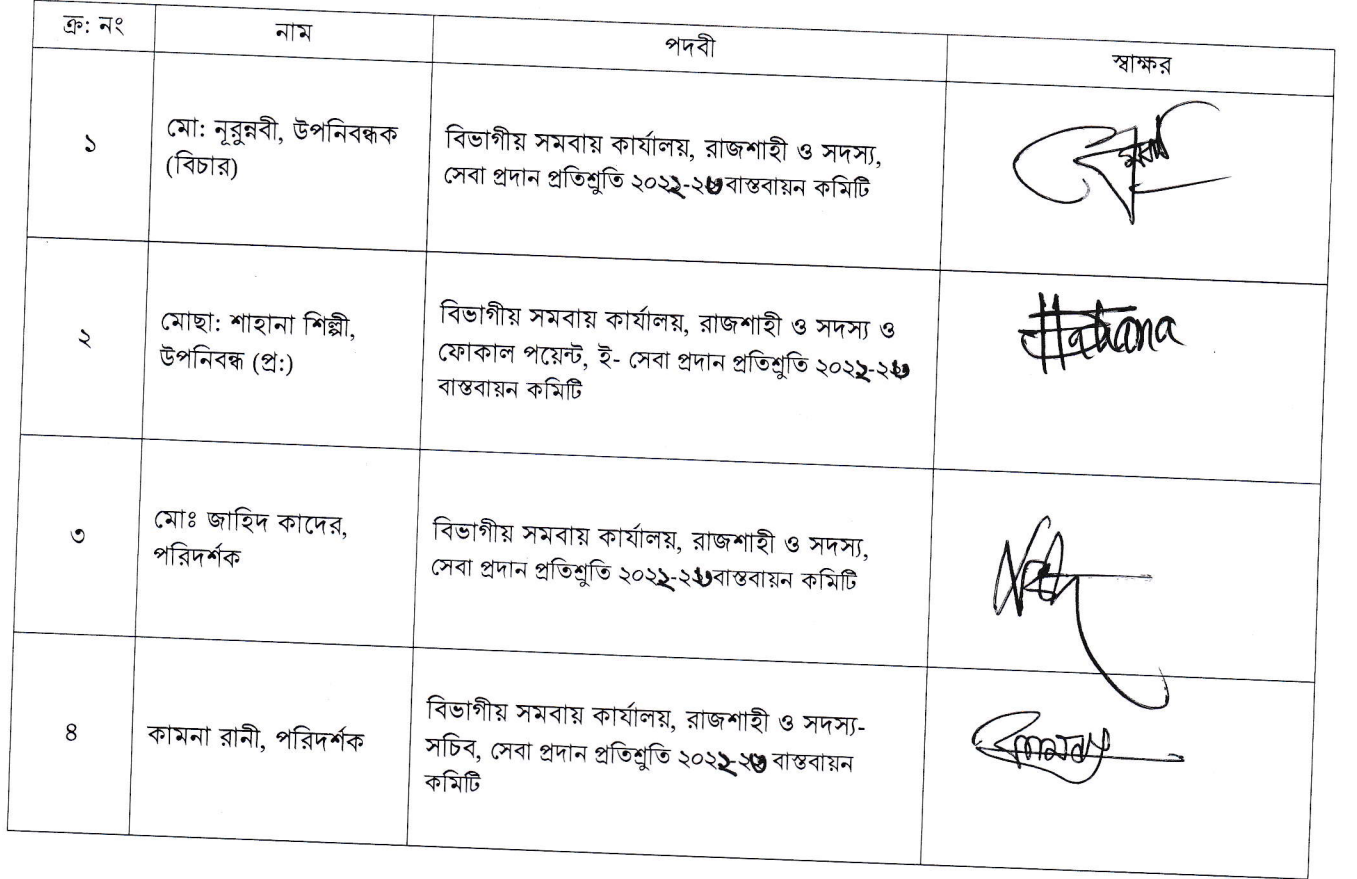 ক্র: নং নাম পদবী স্বাক্ষর
১
মো: নূরুন্নবী, উপনিবন্ধক
(বিচার)
বিভাগীয় সমবায় কার্যালয়, রাজশাহী ও সদস্য,
সেবা প্রদান প্রতিশ্রুতি ২০২২-২৩ বাস্তবায়ন কমিটি
২
মোছা: শাহানা শিল্পী,
উপনিবন্ধ (প্র:)
বিভাগীয় সমবায় কার্যালয়, রাজশাহী ও সদস্য ও
ফোকাল পয়েন্ট, ই- সেবা প্রদান প্রতিশ্রুতি ২০২২-২৩
বাস্তবায়ন কমিটি
৩
মোঃ জাহিদ কাদের,
পরিদর্শক
বিভাগীয় সমবায় কার্যালয়, রাজশাহী ও সদস্য,
সেবা প্রদান প্রতিশ্রুতি ২০২২-২৩ বাস্তবায়ন কমিটি
৪
কামনা রানী, পরিদর্শক
বিভাগীয় সমবায় কার্যালয়, রাজশাহী ও সদস্য-
সচিব, সেবা প্রদান প্রতিশ্রুতি ২০২২-২৩ বাস্তবায়ন
কমিটি